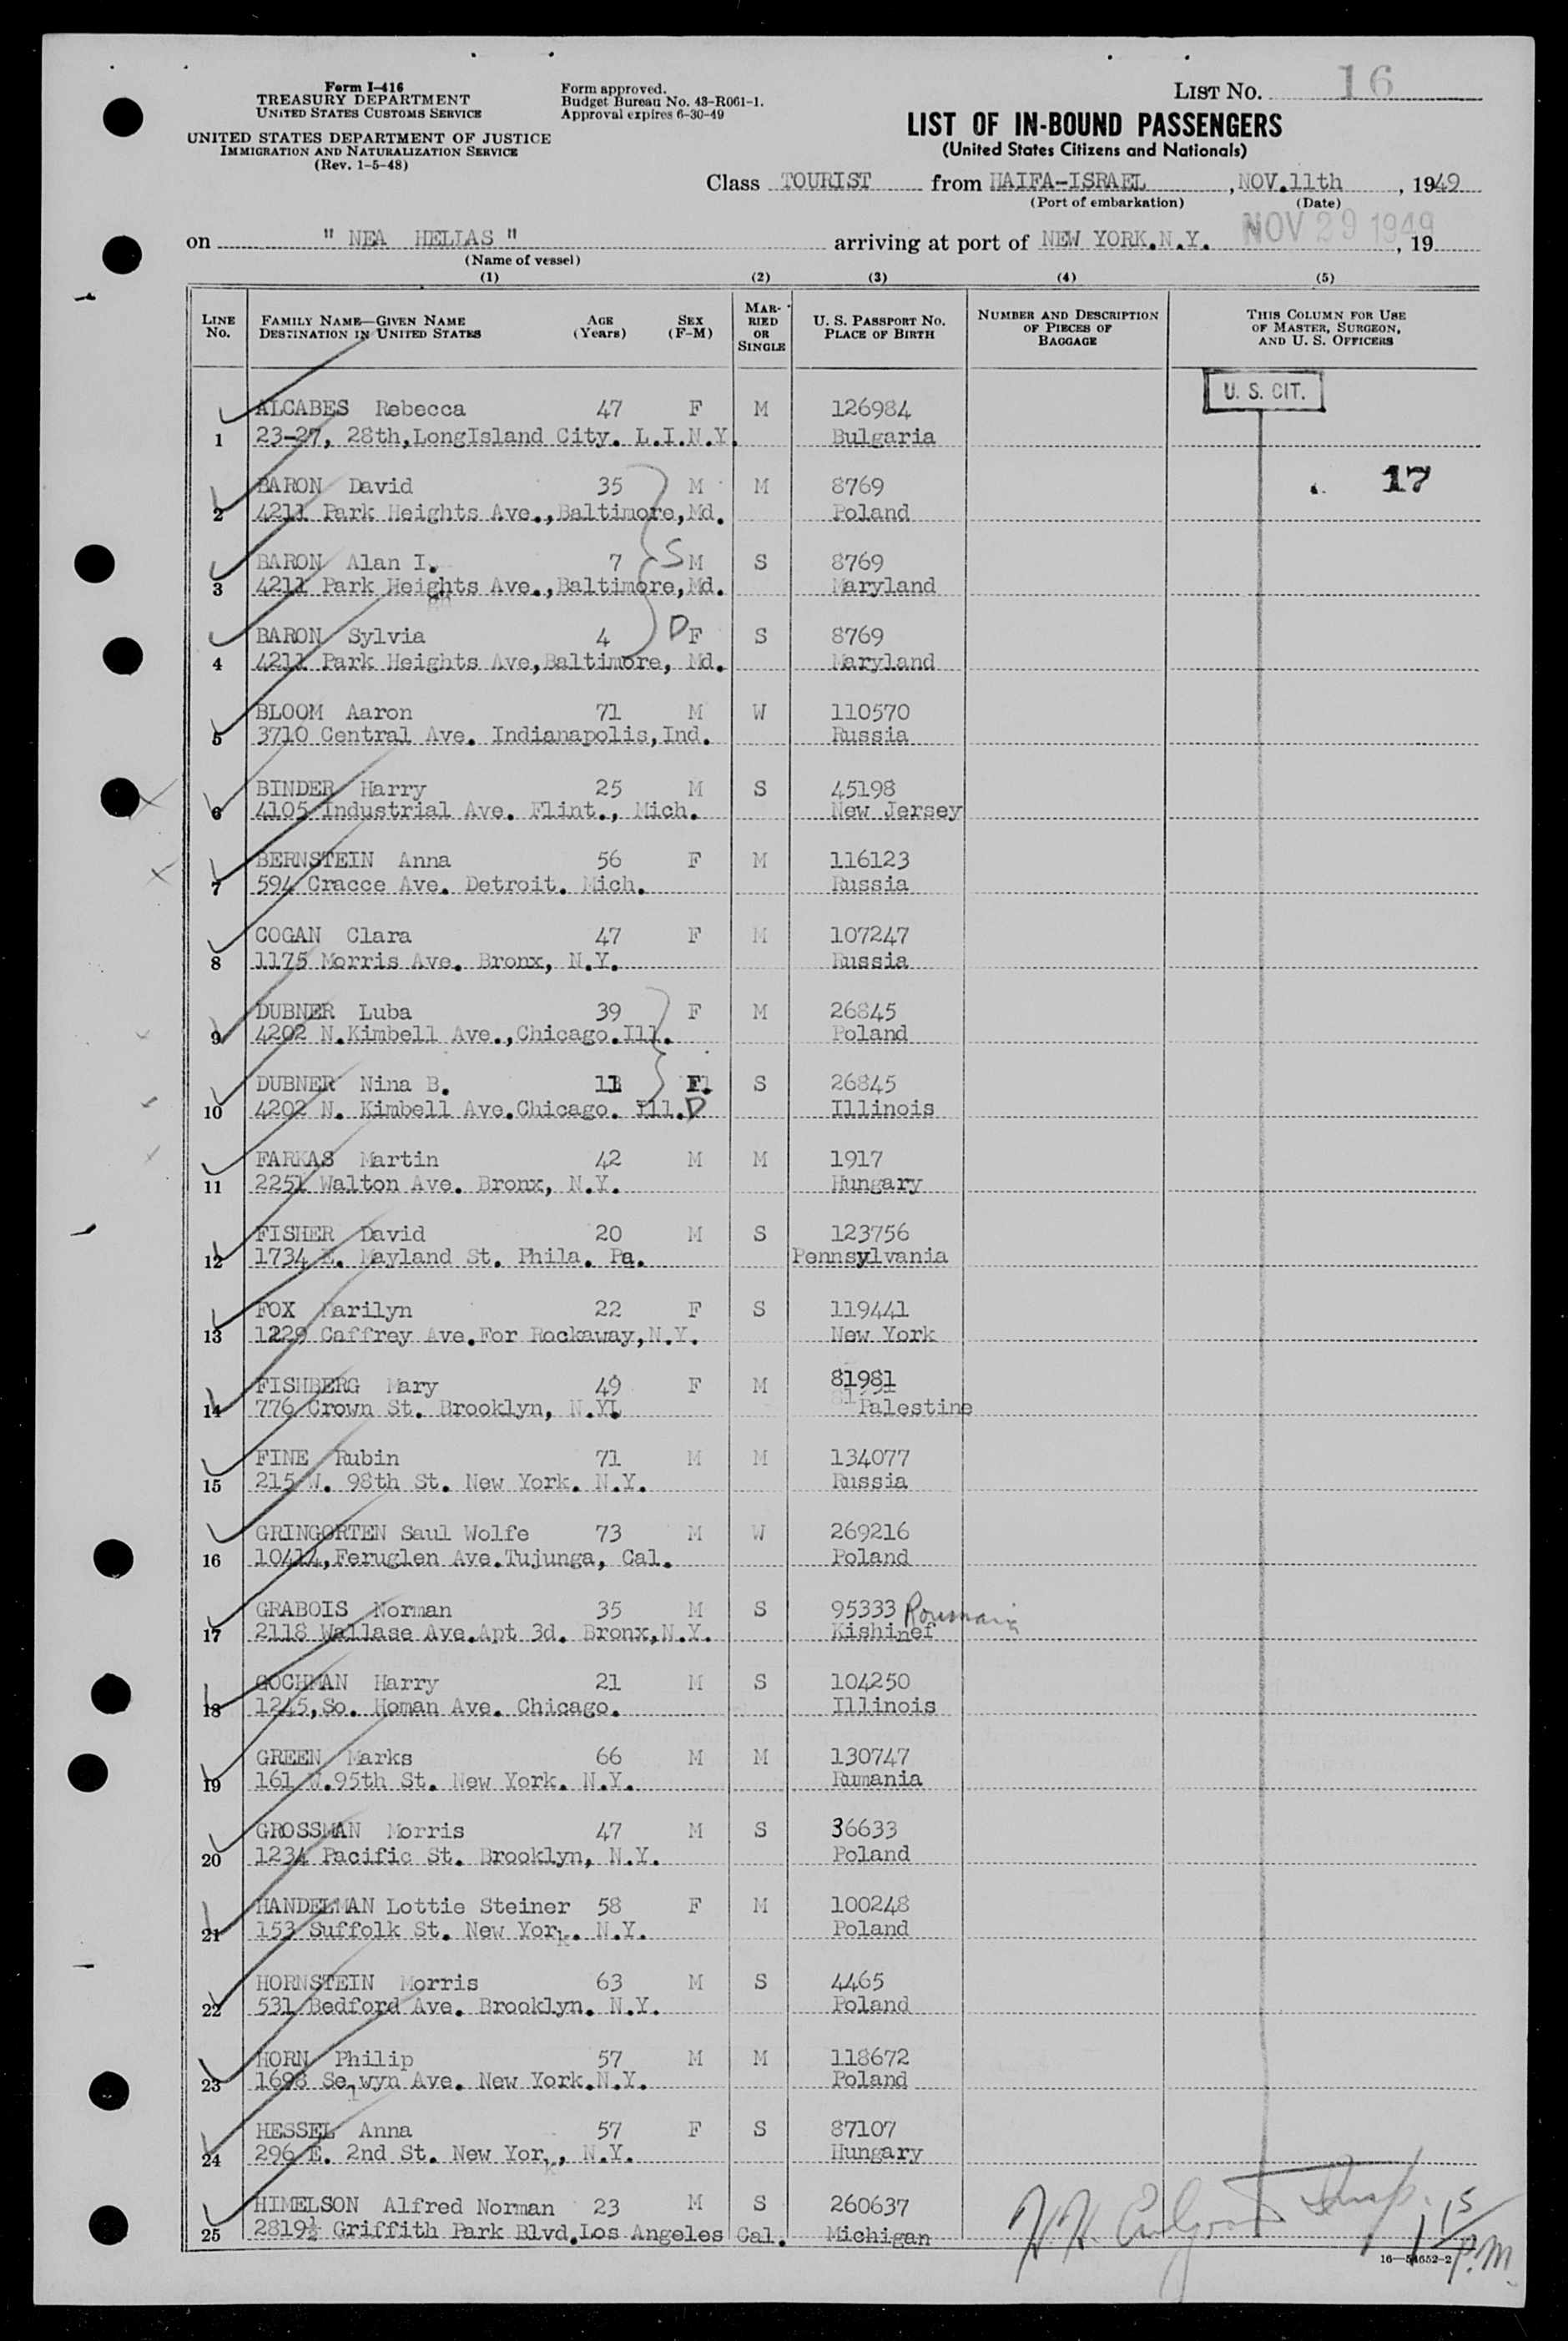 Form I-416
TREASURY DEPARTMENT
UNITED STATES CUSTOMS SERVICE
UNITED STATES DEPARTMENT OF JUSTICE
IMMIGRATION AND NATURALIZATION SERVICE
(Rev. 1-5-48)
Form approved.
Budget Bureau No. 43-R061-1.
Approval expires 6-30-49
LIST NO. 16
LIST OF IN-BOUND PASSENGERS
(United States Citizens and Nationals)
Class TOURIST from HAIFA-ISRAEL, NOV.11th, 1949
(Port of embarkation) (Date)
on " NEA HELLAS " arriving at port of NEW YORK.N.Y. NOV 29 1949, 19
(Name of vessel)
(1) (2) (3) (4) (5)
LINE No. FAMILY NAME—GIVEN NAME DESTINATION IN UNITED STATES AGE (Years) SEX (F-M) MARRIED OR SINGLE U. S. PASSPORT NO. PLACE OF BIRTH NUMBER AND DESCRIPTION OF PIECES OF BAGGAGE THIS COLUMN FOR USE OF MASTER, SURGEON, AND U. S. OFFICERS
U. S. CIT.
ALCABES Rebecca 47 F M 126984
1 23-27, 28th,LongIsland City. L.I.N.Y. Bulgaria
BARON David 35 M M 8769 17
2 4211 Park Heights Ave.,Baltimore,Md. Poland
BARON Alan I. 7 S M S 8769
3 4211 Park Heights Ave.,Baltimore,Md. Maryland
BARON Sylvia 4 D F S 8769
4 4211 Park Heights Ave,Baltimore, Md. Maryland
BLOOM Aaron 71 M W 110570
5 3710 Central Ave. Indianapolis,Ind. Russia
BINDER Harry 25 M S 45198
6 4105 Industrial Ave. Flint., Mich. New Jersey
BERNSTEIN Anna 56 F M 116123
7 594 Cracce Ave. Detroit. Mich. Russia
COGAN Clara 47 F M 107247
8 1175 Morris Ave. Bronx, N.Y. Russia
DUBNER Luba 39 F M 26845
9 4202 N.Kimbell Ave.,Chicago.Ill. Poland
DUBNER Nina B. 11 F. S 26845
10 4202 N. Kimbell Ave.Chicago. Ill. D Illinois
FARKAS Martin 42 M M 1917
11 2251 Walton Ave. Bronx, N.Y. Hungary
FISHER David 20 M S 123756
12 1734 E. Mayland St. Phila. Pa. Pennsylvania
FOX Marilyn 22 F S 119441
13 1229 Caffrey Ave.For Rockaway,N.Y. New York
FISHBERG Mary 49 F M 81981
14 776 Crown St. Brooklyn, N.Y. Palestine
FINE Rubin 71 M M 134077
15 215 W. 98th St. New York. N.Y. Russia
GRINGORTEN Saul Wolfe 73 M W 269216
16 10414,Feruglen Ave.Tujunga, Cal. Poland
GRABOIS Norman 35 M S 95333 Roumania
17 2118 Wallase Ave.Apt 3d. Bronx,N.Y. Kishinef
GOCHMAN Harry 21 M S 104250
18 1245,So. Homan Ave. Chicago. Illinois
GREEN Marks 66 M M 130747
19 161 W.95th St. New York. N.Y. Rumania
GROSSMAN Morris 47 M S 36633
20 1234 Pacific St. Brooklyn, N.Y. Poland
HANDELMAN Lottie Steiner 58 F M 100248
21 153 Suffolk St. New York. N.Y. Poland
HORNSTEIN Morris 63 M S 4465
22 531 Bedford Ave. Brooklyn. N.Y. Poland
HORN Philip 57 M M 118672
23 1698 Selwyn Ave. New York.N.Y. Poland
HESSEL Anna 57 F S 87107
24 296 E. 2nd St. New York, N.Y. Hungary
HIMELSON Alfred Norman 23 M S 260637
25 2819½ Griffith Park Blvd.Los Angeles Cal. Michigan
Insp. 1 15 P.M.
16—54652-2